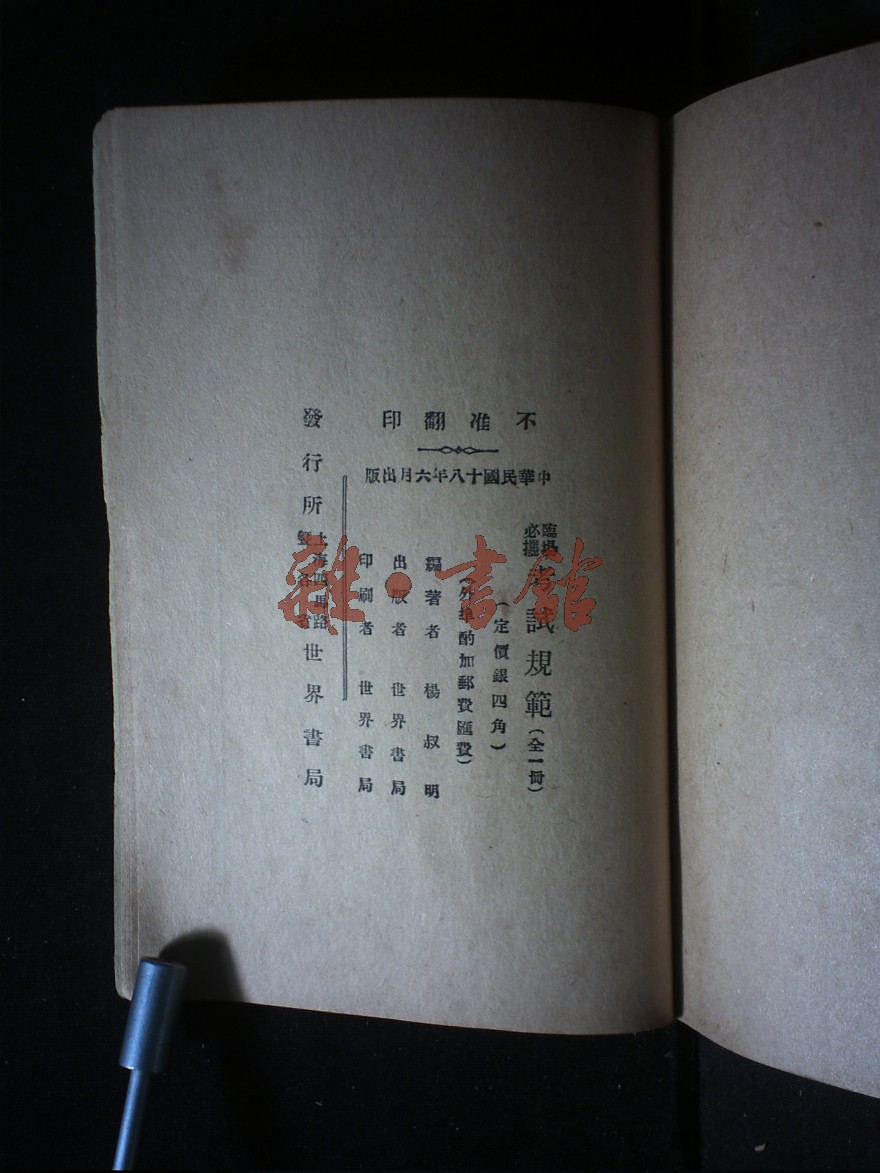 不准翻印
中華民國十八年六月出版
臨場必攜 考試規範(全一冊)
(定價銀四角)
(外埠酌加郵費匯費)
編著者 楊叔明
出版者 世界書局
印刷者 世界書局
發行所 上海四馬路暨各省 世界書局
雜·書館